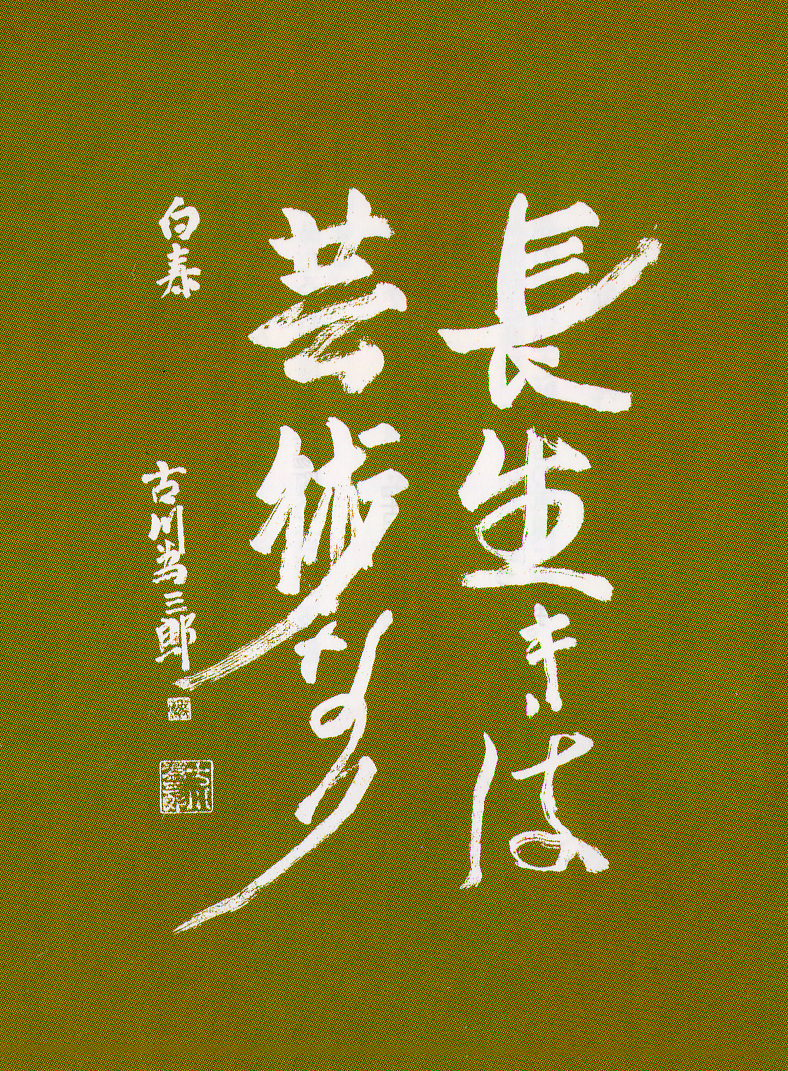 長生きは
芸術なり
白寿
古川為三郎